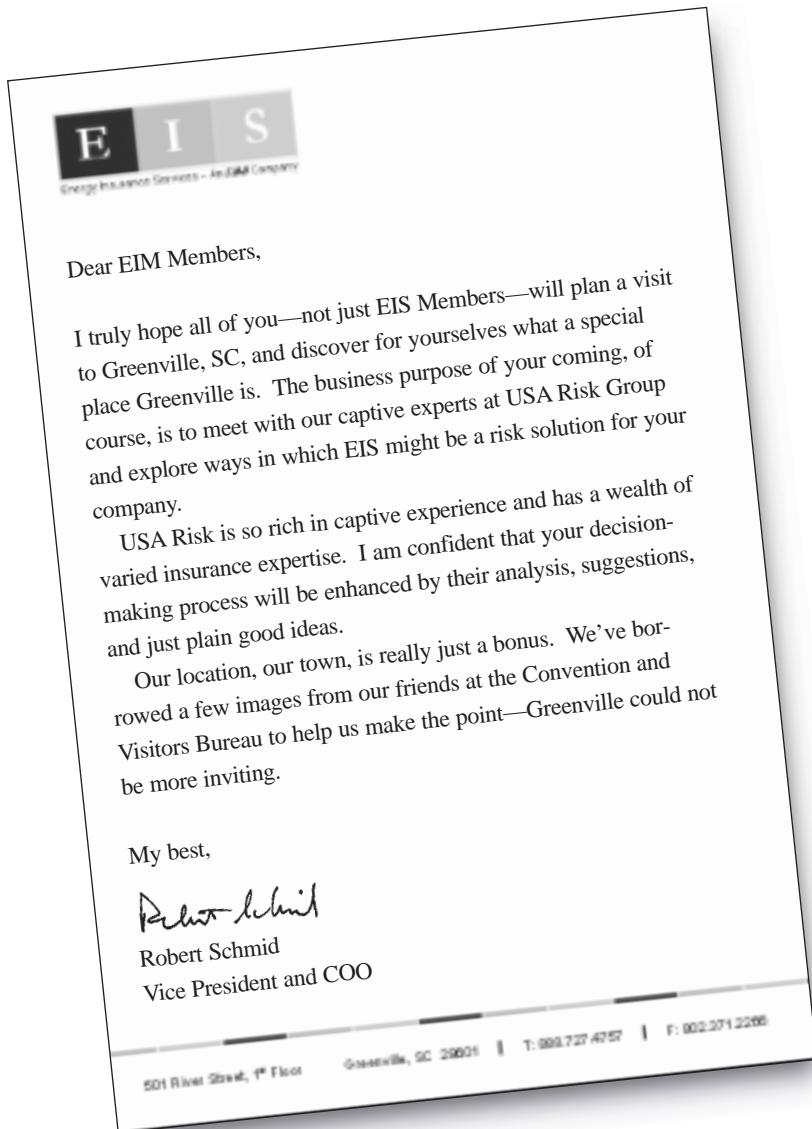 E I S
Energy Insurance Services – An EIM Company
Dear EIM Members,
I truly hope all of you—not just EIS Members—will plan a visit
to Greenville, SC, and discover for yourselves what a special
place Greenville is. The business purpose of your coming, of
course, is to meet with our captive experts at USA Risk Group
and explore ways in which EIS might be a risk solution for your
company.
USA Risk is so rich in captive experience and has a wealth of
varied insurance expertise. I am confident that your decision-
making process will be enhanced by their analysis, suggestions,
and just plain good ideas.
Our location, our town, is really just a bonus. We’ve bor-
rowed a few images from our friends at the Convention and
Visitors Bureau to help us make the point—Greenville could not
be more inviting.
My best,
Robert Schmid
Robert Schmid
Vice President and COO
501 River Street, 1st Floor Greenville, SC 29601 | T: | F: